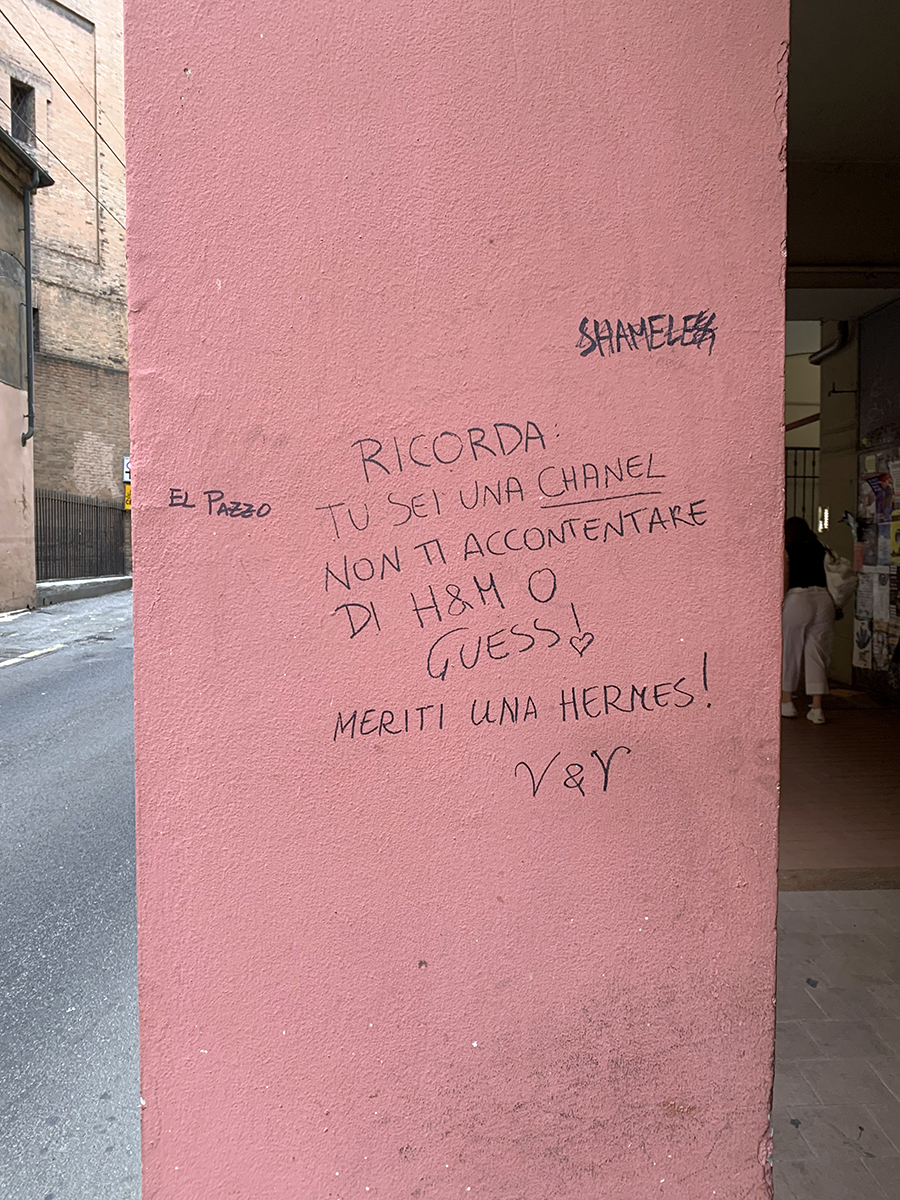 SHAMELESS
RICORDA:
EL PAZZO
TU SEI UNA CHANEL
NON TI ACCONTENTARE
DI H&M O
GUESS!
MERITI UNA HERMES!
V&V